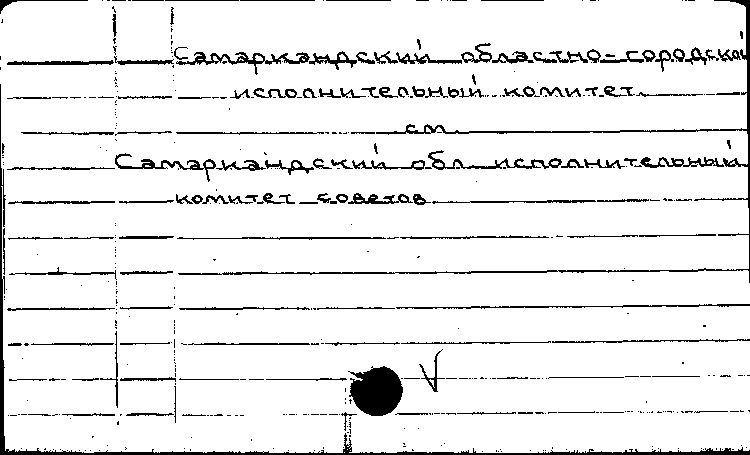 Самаркандский областно-городской
исполнительный комитет.
см.
Самаркандский обл. исполнительный
комитет советов